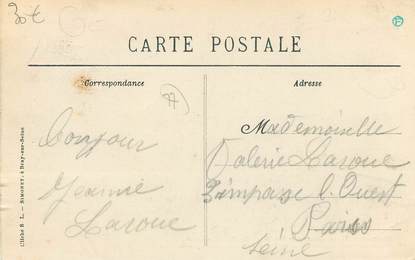 30€
CARTE POSTALE
Correspondance
Adresse
Bonjour
Jeanne
Laroue
Mademoiselle
Valérie Laroue
3 impasse l. Ouest
Paris
Seine
Cliché B L. - SIMONET, à Bray-sur-Seine